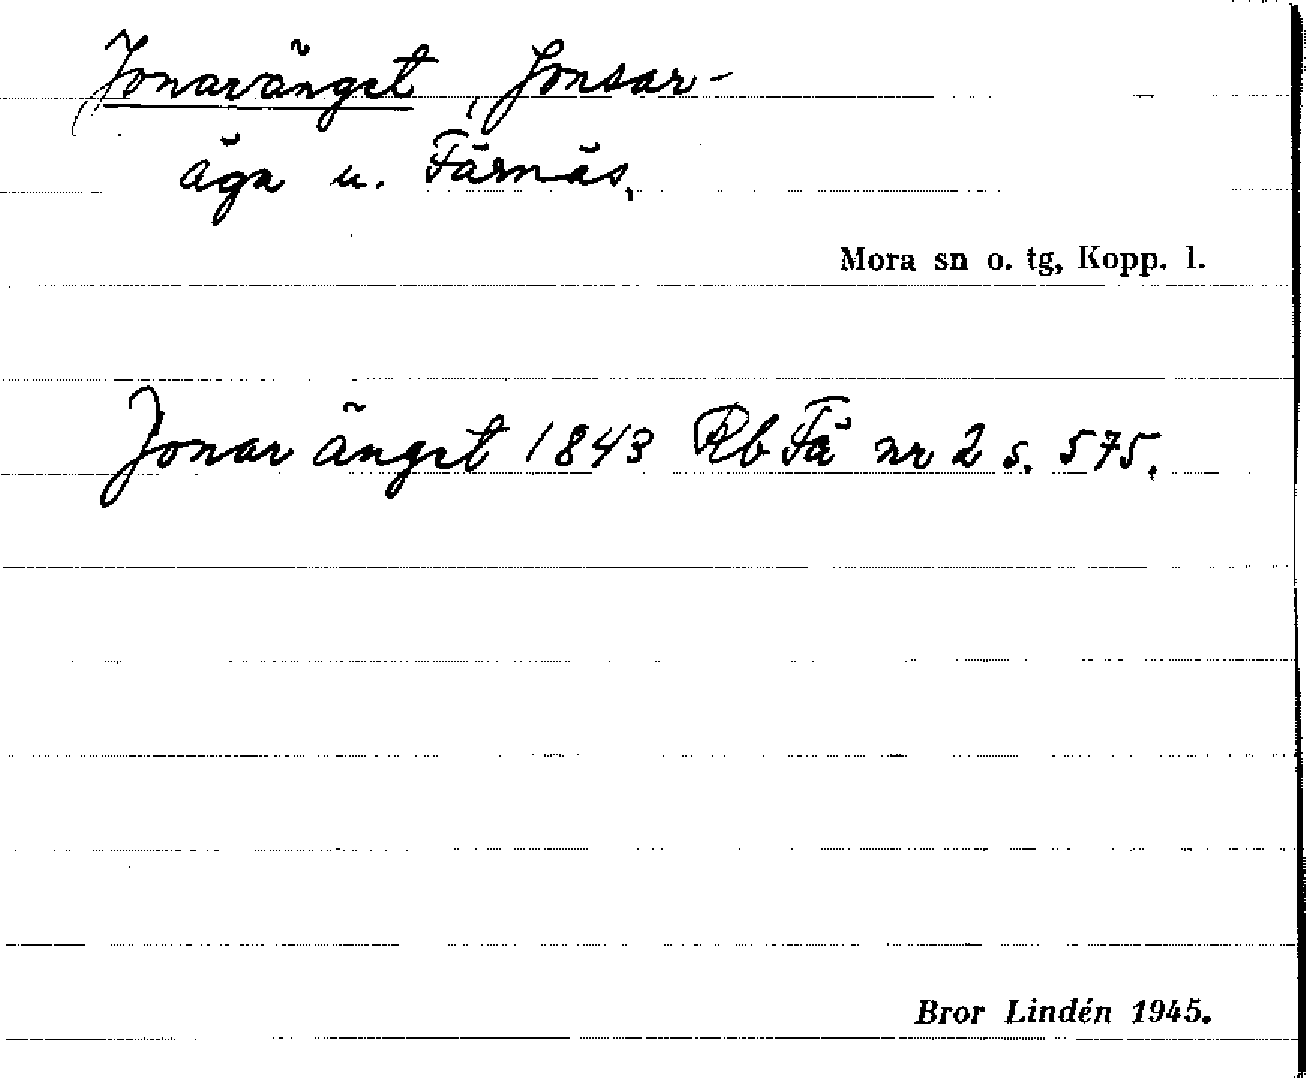 Jonarvänget, Jonsar-
äga u. Färnäs.
Mora sn o. tg, Kopp. l.
Jonar änget 1843 Rb Fä nr 2 s. 575.
Bror Lindén 1945.